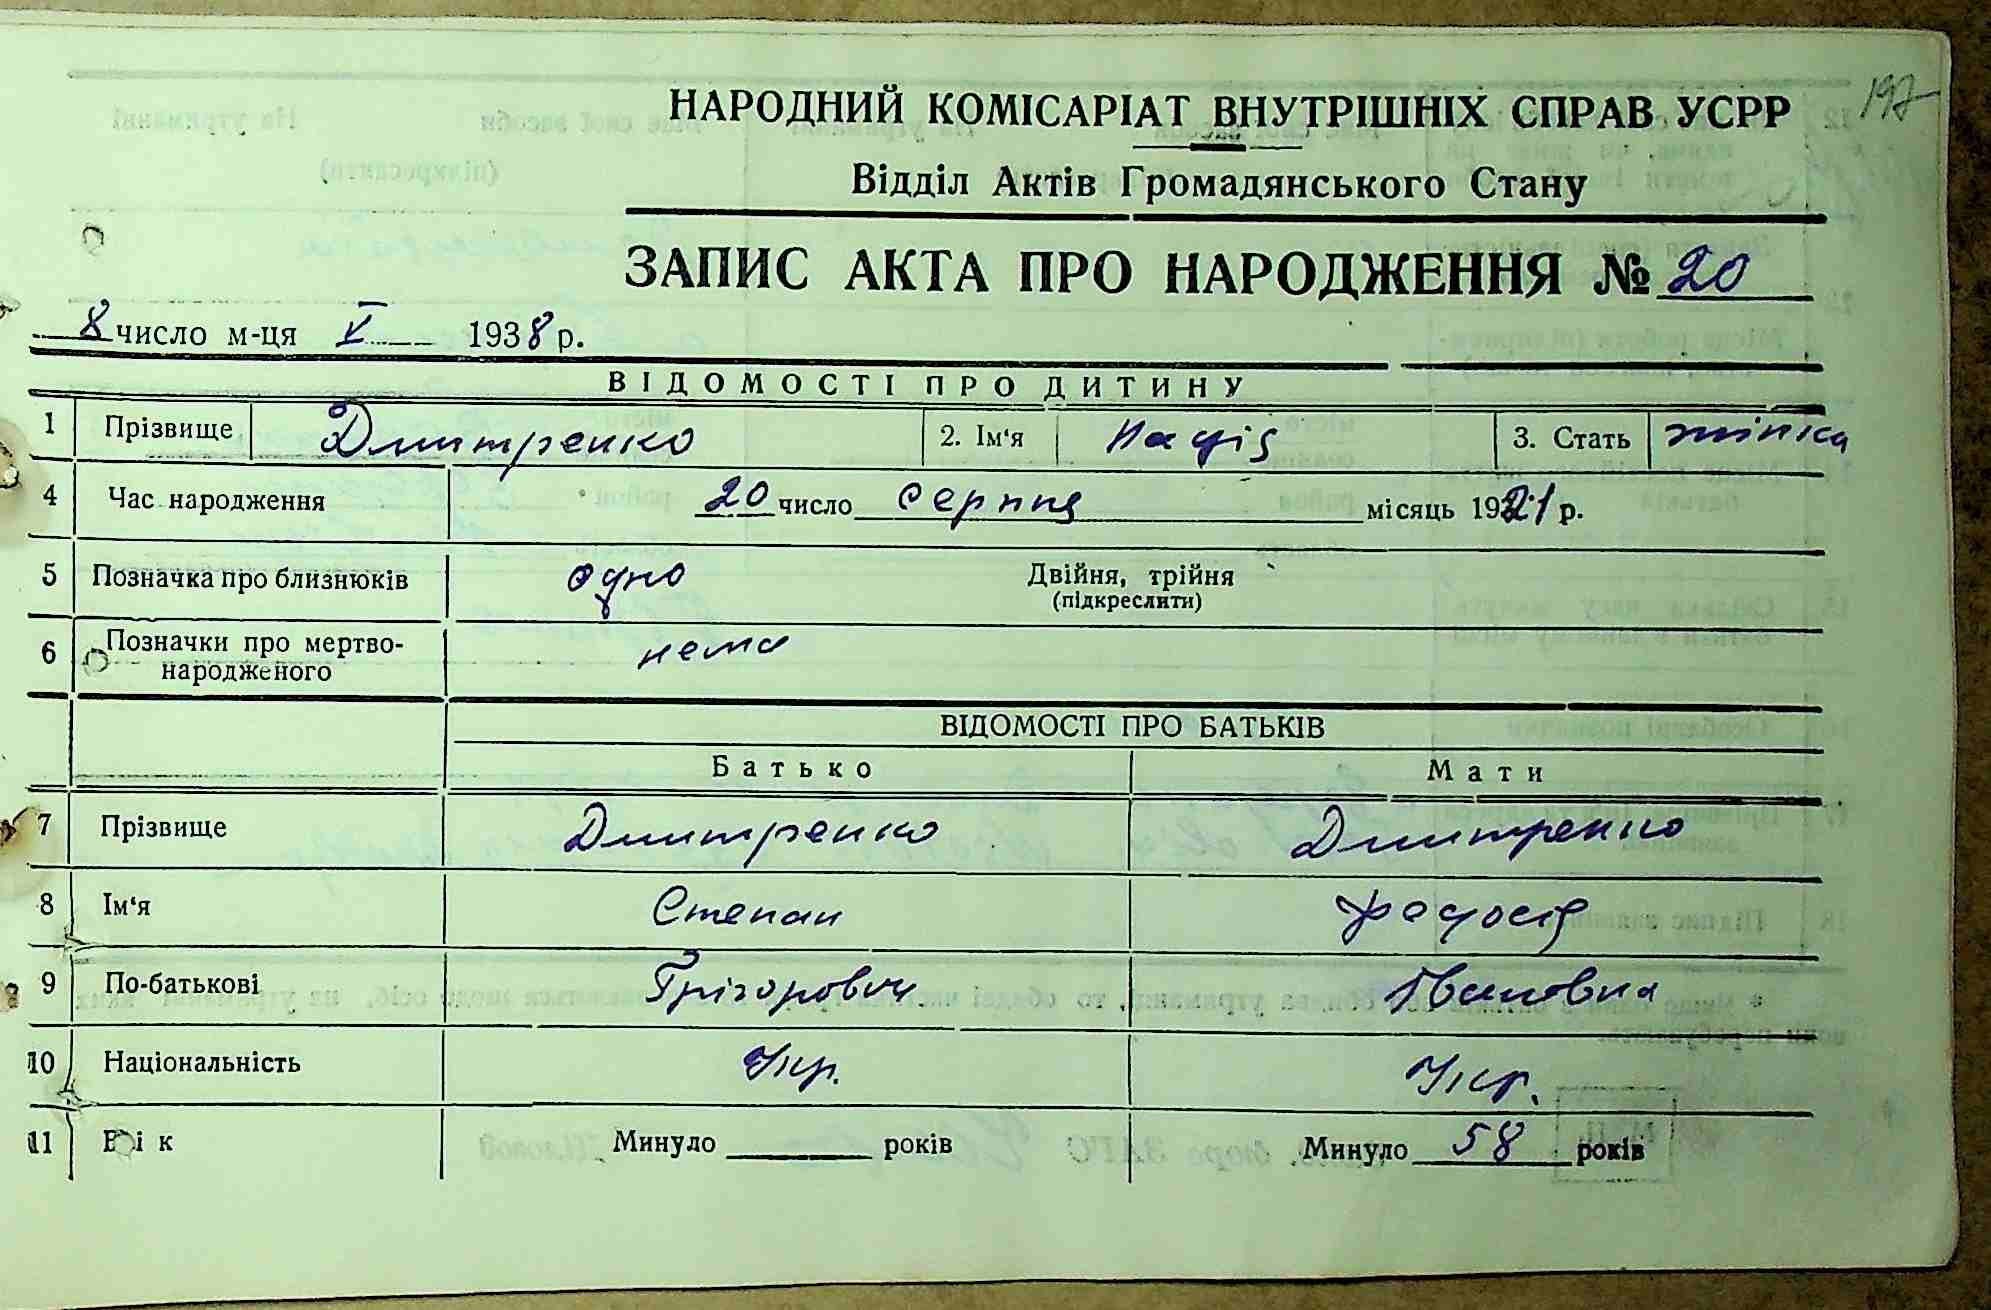 197
НАРОДНИЙ КОМІСАРІАТ ВНУТРІШНІХ СПРАВ УСРР
Відділ Актів Громадянського Стану
ЗАПИС АКТА ПРО НАРОДЖЕННЯ № 20
8 число м-ця V 1938 р.
ВІДОМОСТІ ПРО ДИТИНУ
1 Прізвище Дмитренко 2. Ім‘я Надія 3. Стать жінка
4 Час народження 20 число серпня місяць 1921 р.
5 Позначка про близнюків одно Двійня, трійня
(підкреслити)
6 Позначки про мертво-
народженого нема
ВІДОМОСТІ ПРО БАТЬКІВ
Батько Мати
7 Прізвище Дмитренко Дмитренко
8 Ім‘я Степан Федосія
9 По-батькові Грігорович Івановна
10 Національність Укр. Укр.
11 Вік Минуло років Минуло 58 років